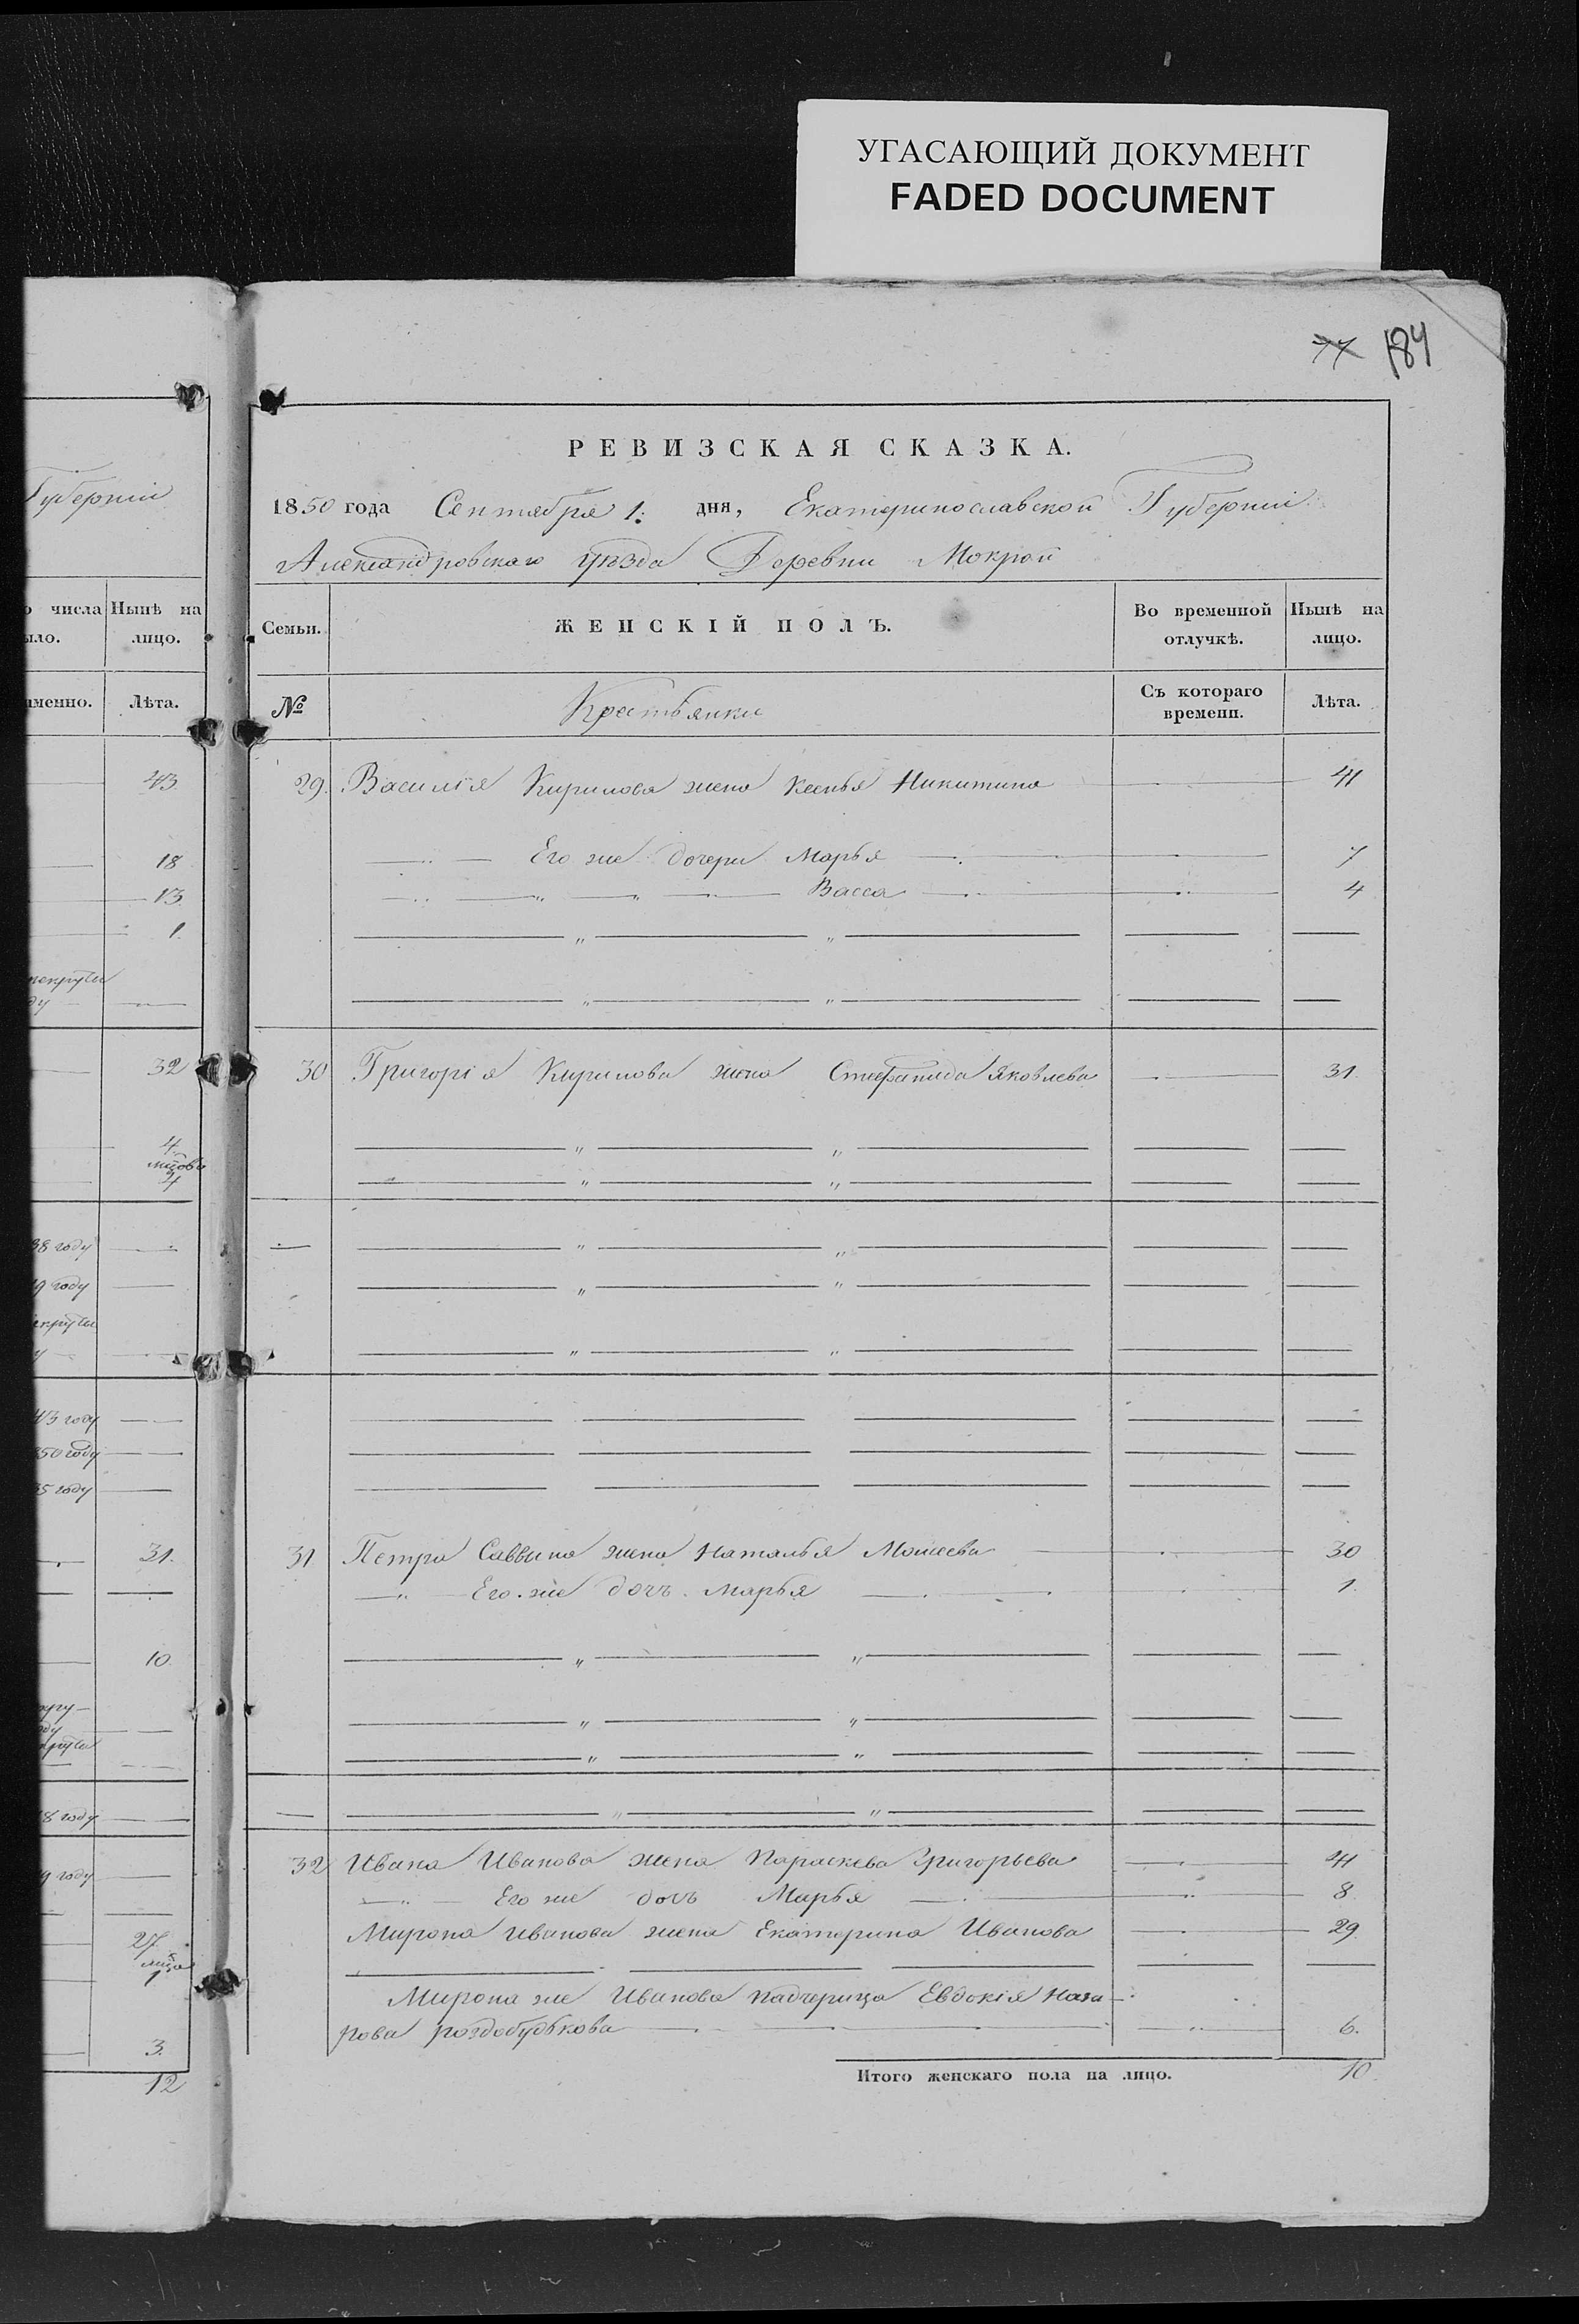 УГАСАЮЩИЙ ДОКУМЕНТ
FADED DOCUMENT
77 184
Губерніи
РЕВИЗСКАЯ СКАЗКА.
1850 года Сентября 1. дня, Екатеринославской Губерніи
Александровскаго уѣзда Деревни Мокрой
числа Нынѣ на
ыло. лицо.
именно. Лѣта.
Семьи. ЖЕНСКІЙ ПОЛЪ. Во временной отлучкѣ. Нынѣ на лицо.
№ Крестьянки Съ котораго времени. Лѣта.
43
18
13
1
рекруты
ду
32
4
38 году
9 году
екруты
43 году
850 году
35 году
31.
10
8 году
9 году
27
3.
12
29. Василія Кирилова жена Ксенья Никитина 41
Его же дочери Марья 7
Васса 4
30 Григорія Кирилова жена Стефанида Яковлева 31.
31 Петра Саввина жена Наталья Моисеева 30
Его же дочь Марья 1.
32 Ивана Иванова жена Параскева Григорьева 41
Его же дочь Марья 8.
Мирона Иванова жена Екатерина Иванова 29
Мирона же Иванова падчерица Евдокія Наза-
рова роздобудькова 6.
Итого женскаго пола на лицо. 10.